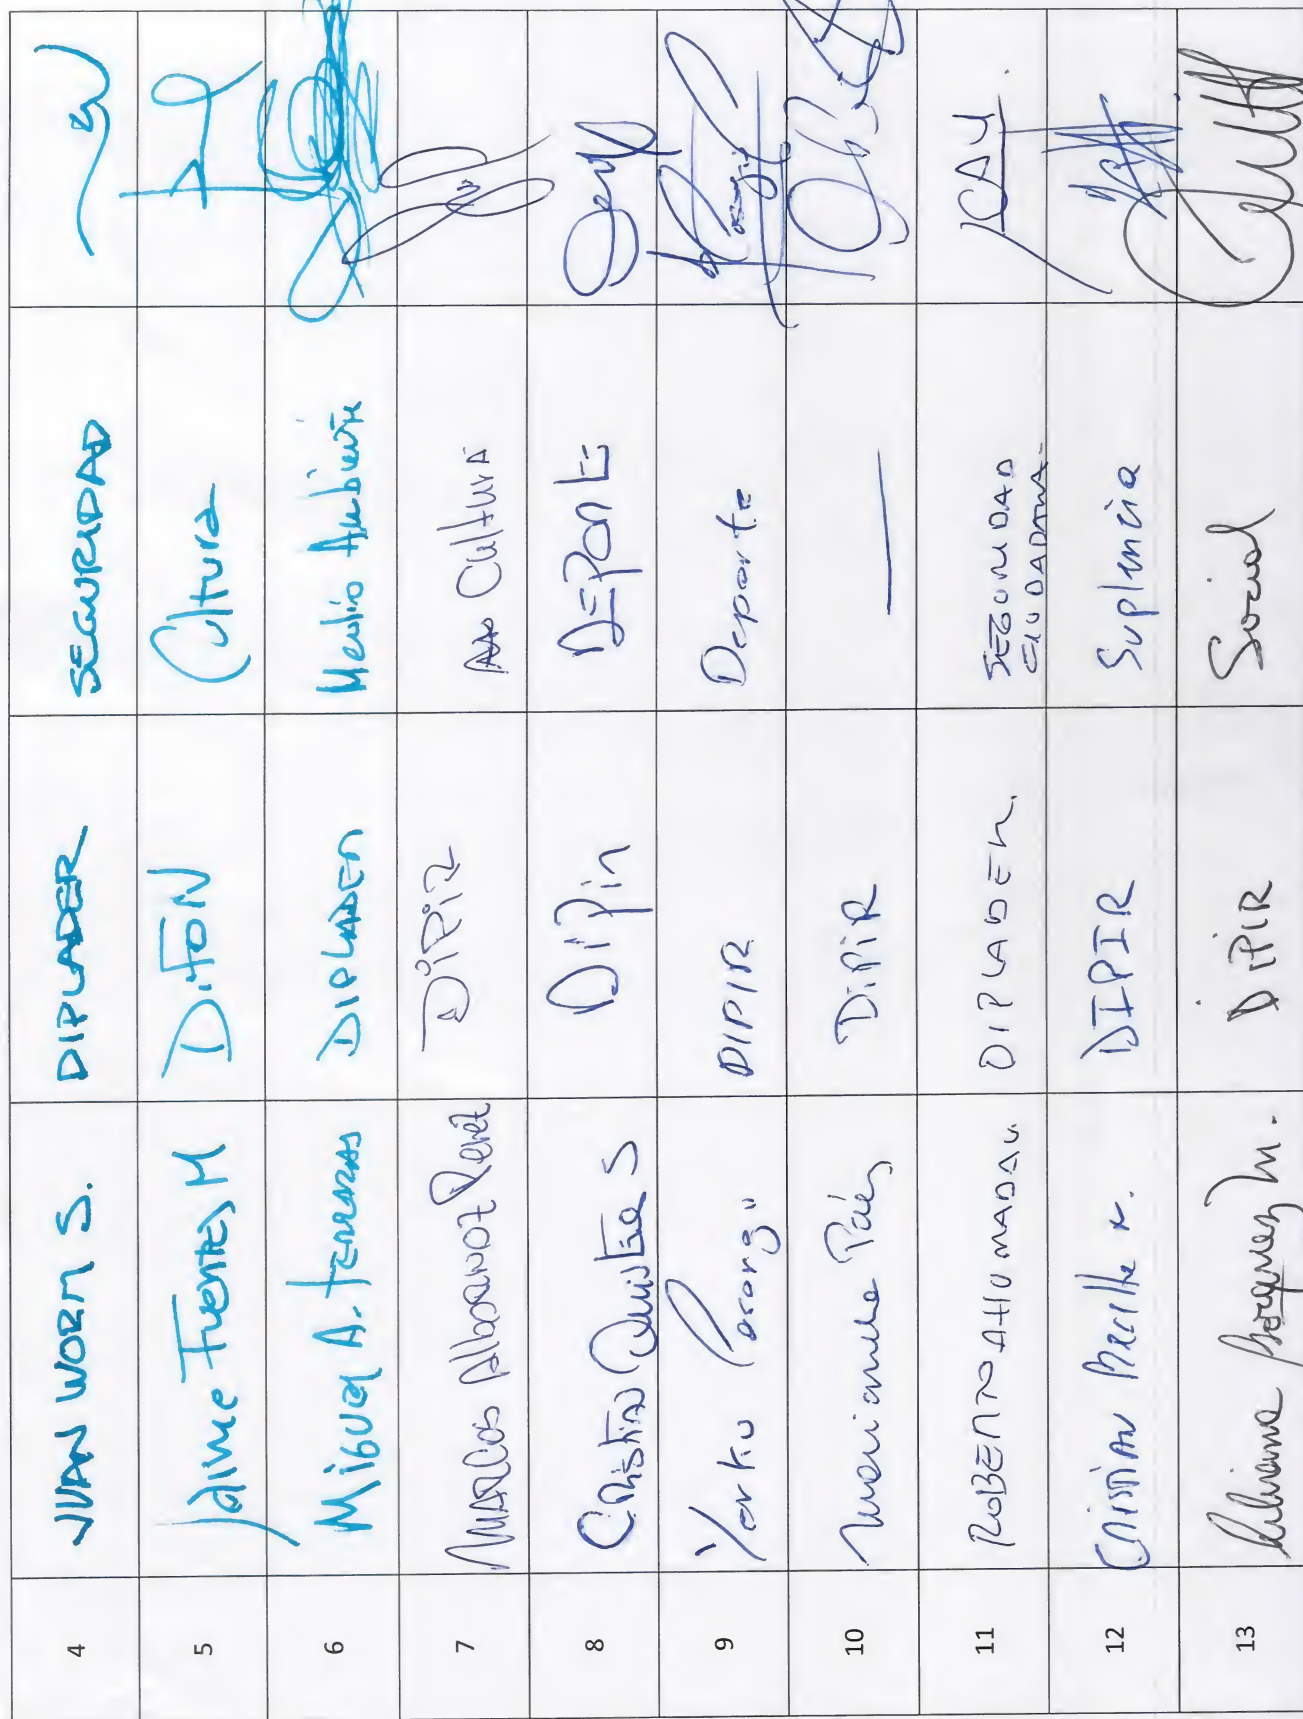 4 JUAN WORM S. DIPLADER SEGURIDAD
5 Jaime Fuentes M DiFON Cultura
6 Miguel A. Terrazas DIPLADER Medio Ambiente
7 Marcos Albornoz Perez DiPiR Cultura
8 Cristian Quinteros S DIPir DEPORTE
9 Yerko DIPIR Deporte
10 Páez DiPiR —
11 ROBERTO AHUMADA V. DIPLADER. SEGURIDAD
CIUDADANA.
12 Cristian DIPIR Suplencia
13 DiPIR Social